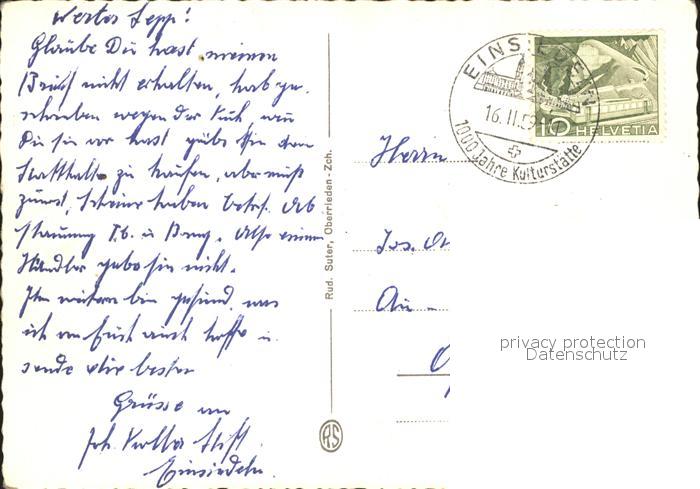 Werter Sepp!
Glaube Du hast meinen
Brief nicht erhalten, hab ge-
schrieben wegen der Kuh, wen
Du sie vor hast gebe ihn dem
Statthalter zu kaufen, aber muß
zuerst, Scheine haben betrf. Ab
stammung Tb. u Bang. Also einem
Händler gebe sie nicht.
Im weitern bin gesund, was
ich von Euch auch hoffe u.
sende dir besten
Grüsse von
Joh. Stift
Einsiedeln.
Rud. Suter, Oberrieden-Zch.
RS
EINSIEDELN
16.II.5
1000 Jahre Kulturstätte
10 HELVETIA
Herrn
Jos.
Au -
privacy protection
Datenschutz